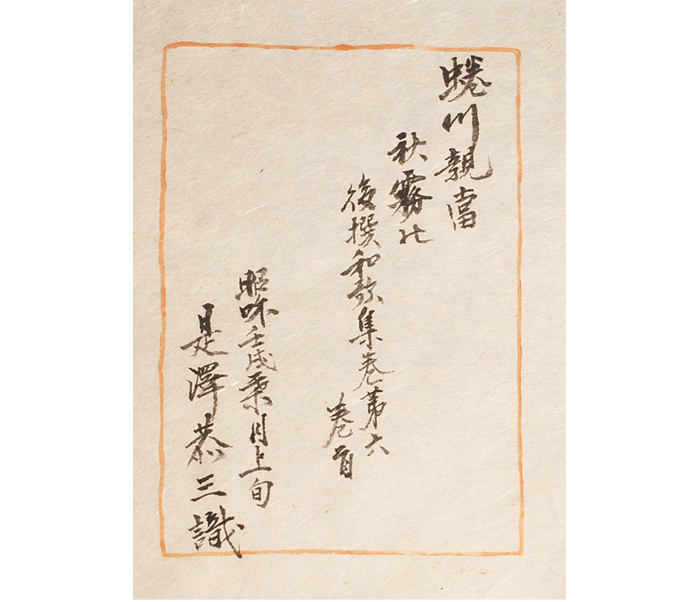 蜷川親當
秋霧の
後撰和歌集巻第六
巻首
昭咊壬戌季月上旬
是澤恭三識